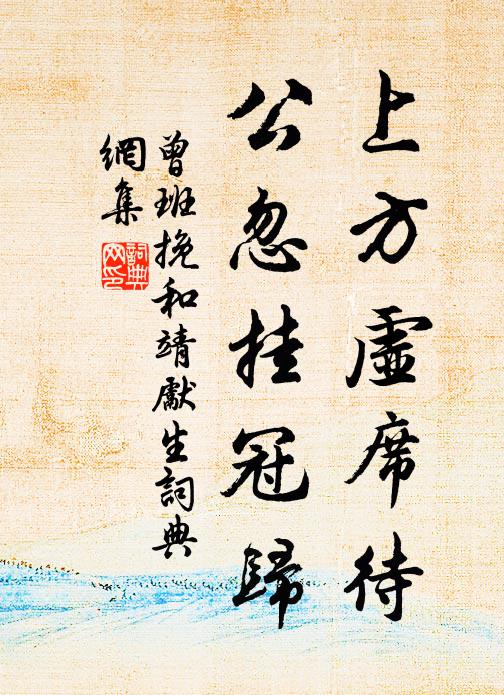 上方虛席待
公忽挂冠歸
曾班挽和靖獻生詞典
網集
詞典
网印